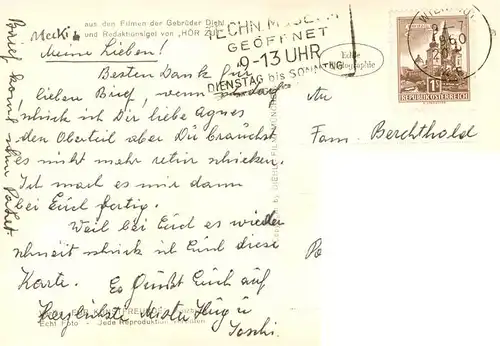 Mecki
aus den Filmen der Gebrüder Diehl
und Redaktionsigel von „HÖR ZU"
Meine Lieben!
Besten Dank für
lieben Brief,
schick ich Dir liebe Agnes
den Oberteil aber Du brauchst
es nicht mehr retur schicken.
Ich mach es mir dann
bei Euch fertig.
Weil bei Euch es wieder
schneit schick ich Euch diese
Karte. Es Grüßt Euch auf
Herzlichste Mister Hug u
Joschi.
Echt Foto - Jede Reproduktion verboten
Brief kommt
TECHN. MUSEUM
GEÖFFNET
9-13 UHR
DIENSTAG bis SONNTAG
WIEN
1960
REPUBLIK ÖSTERREICH
1S
An
Fam. Berchthold